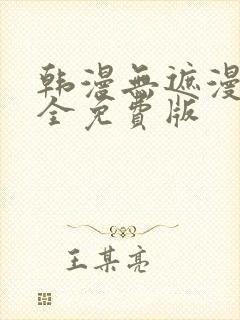 韩漫無遮漫
全免費版
王某亮